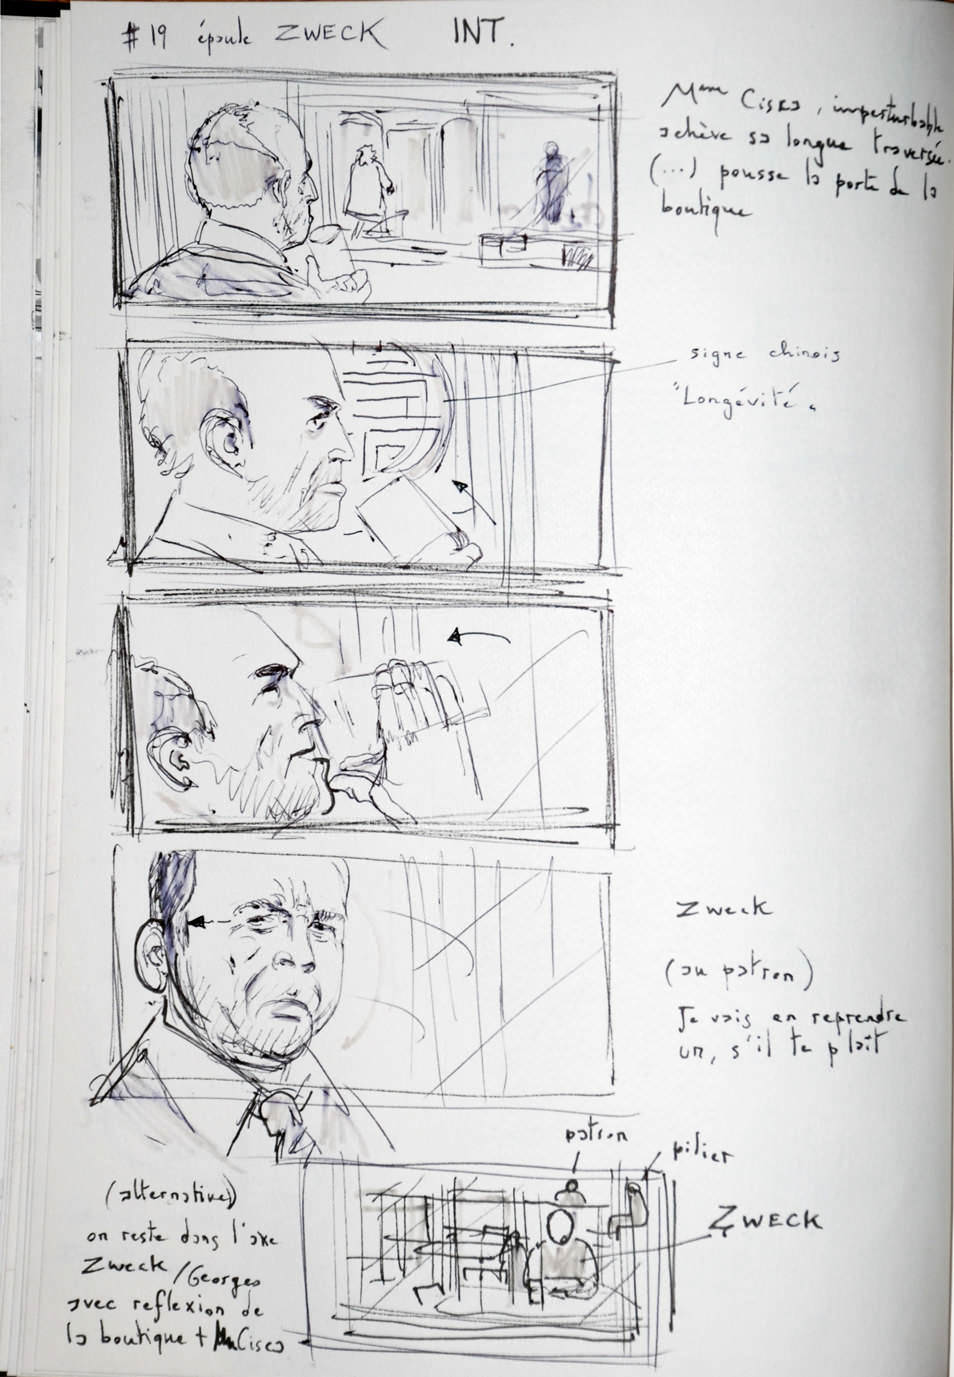 # 19 épaule ZWECK INT.
Mme Cisca, imperturbable
achève sa longue traversée.
(...) pousse la porte de la
boutique
signe chinois
"Longévité"
Zweck
(au patron)
Je vais en reprendre
un, s'il te plait
patron
pilier
ZWECK
(alternative)
on reste dans l'axe
Zweck/Georges
avec reflexion de
la boutique + Mme Cisca